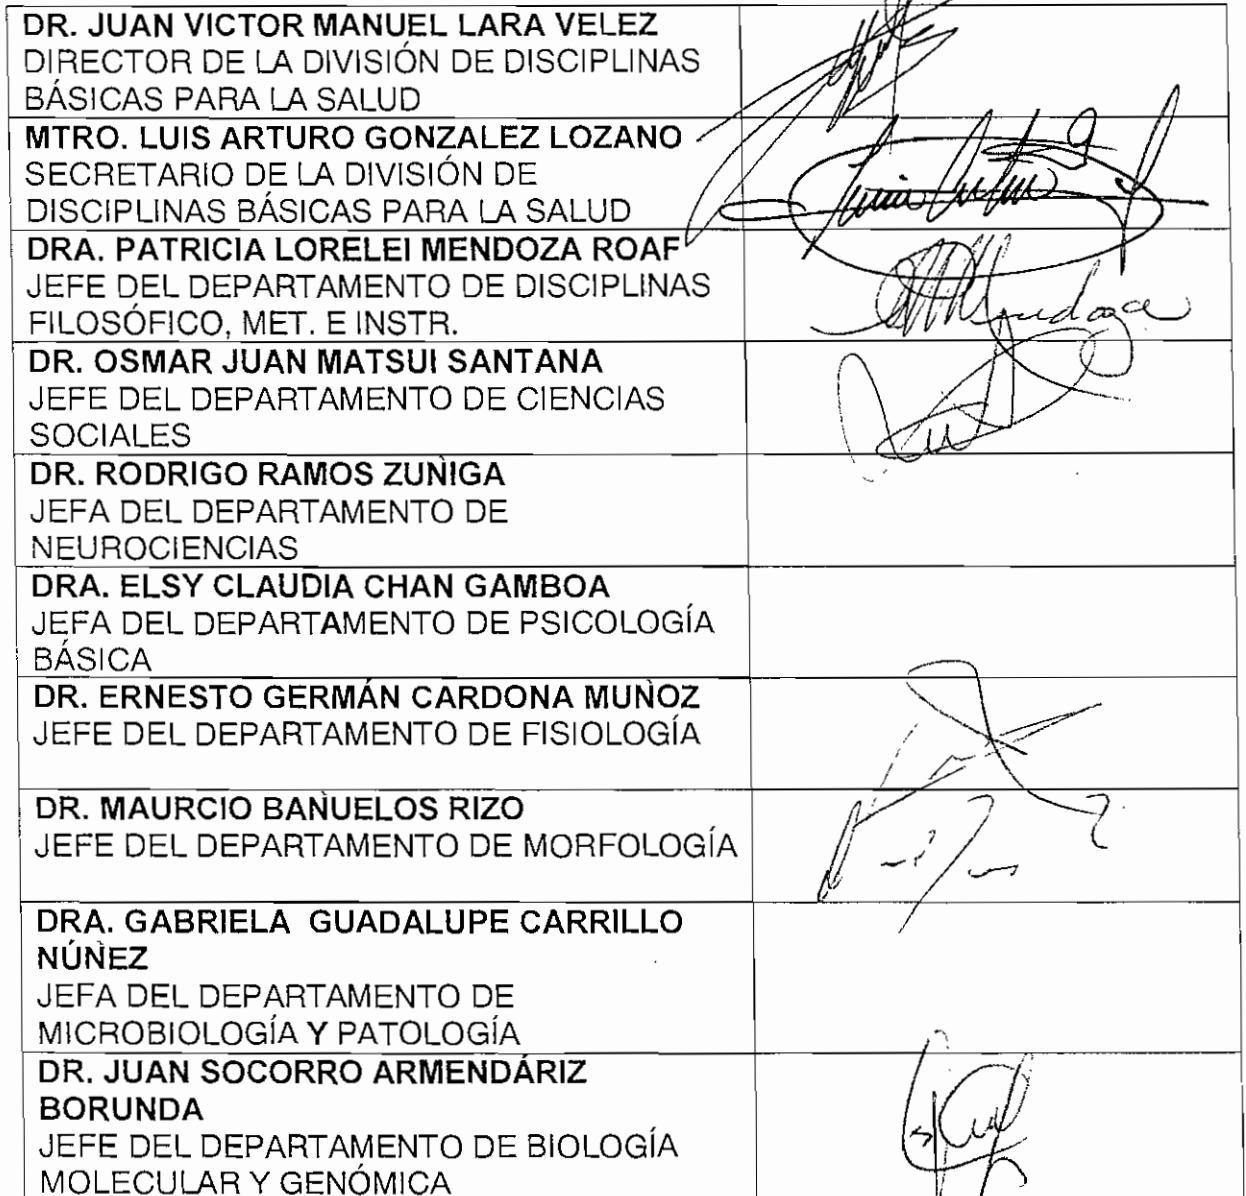 DR. JUAN VICTOR MANUEL LARA VELEZ
DIRECTOR DE LA DIVISIÓN DE DISCIPLINAS
BÁSICAS PARA LA SALUD
MTRO. LUIS ARTURO GONZALEZ LOZANO
SECRETARIO DE LA DIVISIÓN DE
DISCIPLINAS BÁSICAS PARA LA SALUD
DRA. PATRICIA LORELEI MENDOZA ROAF
JEFE DEL DEPARTAMENTO DE DISCIPLINAS
FILOSÓFICO, MET. E INSTR.
DR. OSMAR JUAN MATSUI SANTANA
JEFE DEL DEPARTAMENTO DE CIENCIAS
SOCIALES
DR. RODRIGO RAMOS ZUÑIGA
JEFA DEL DEPARTAMENTO DE
NEUROCIENCIAS
DRA. ELSY CLAUDIA CHAN GAMBOA
JEFA DEL DEPARTAMENTO DE PSICOLOGÍA
BÁSICA
DR. ERNESTO GERMÁN CARDONA MUÑOZ
JEFE DEL DEPARTAMENTO DE FISIOLOGÍA
DR. MAURCIO BAÑUELOS RIZO
JEFE DEL DEPARTAMENTO DE MORFOLOGÍA
DRA. GABRIELA GUADALUPE CARRILLO
NÚÑEZ
JEFA DEL DEPARTAMENTO DE
MICROBIOLOGÍA Y PATOLOGÍA
DR. JUAN SOCORRO ARMENDÁRIZ
BORUNDA
JEFE DEL DEPARTAMENTO DE BIOLOGÍA
MOLECULAR Y GENÓMICA